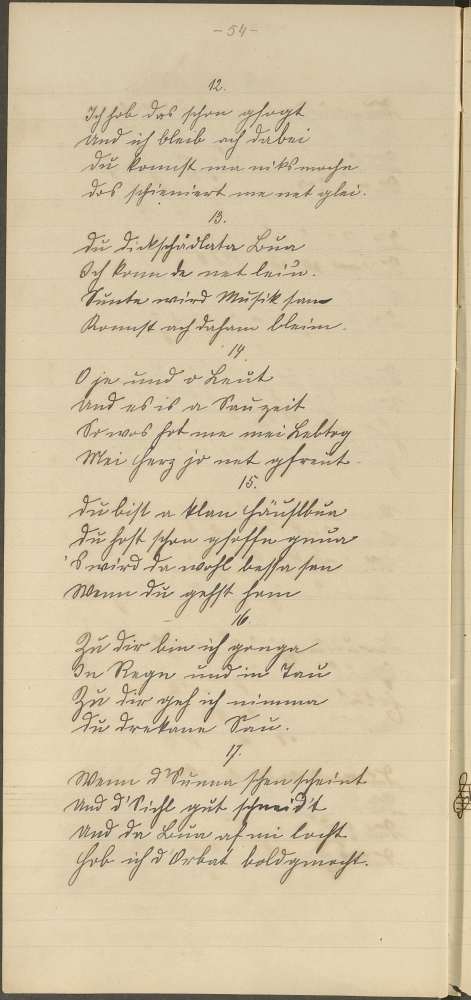 - 54 -
12.
Ich hob das schon gsagt
Und ich bleib ach dabei
Du konnst ma niks mache
das schieniert me net glei.
13.
Du dickschädlata Bua
Ich konn de net leiu.
Sunte wird Musik sam
Konnst ach daham bleim.
14.
O je und o Leut
Und es is a Sauzeit
So wos hot me mei Lebtog
Mei Herz jo net gfreut.
15.
Du bist a klan Häuslbua
Du host schon gsoffn gnua
's wird da wohl bessa sen
Wenn du gehst ham
16.
Zu dir bin ich ganga
In Regn und in Tau
Zu dir geh ich nimma
Du drekane Sau.
17.
Wenn d'Sunna schen scheint
Und d'Sichl gut schneid't
Und da Bua af mi locht
Hob ich d'Orbat bold gmocht.